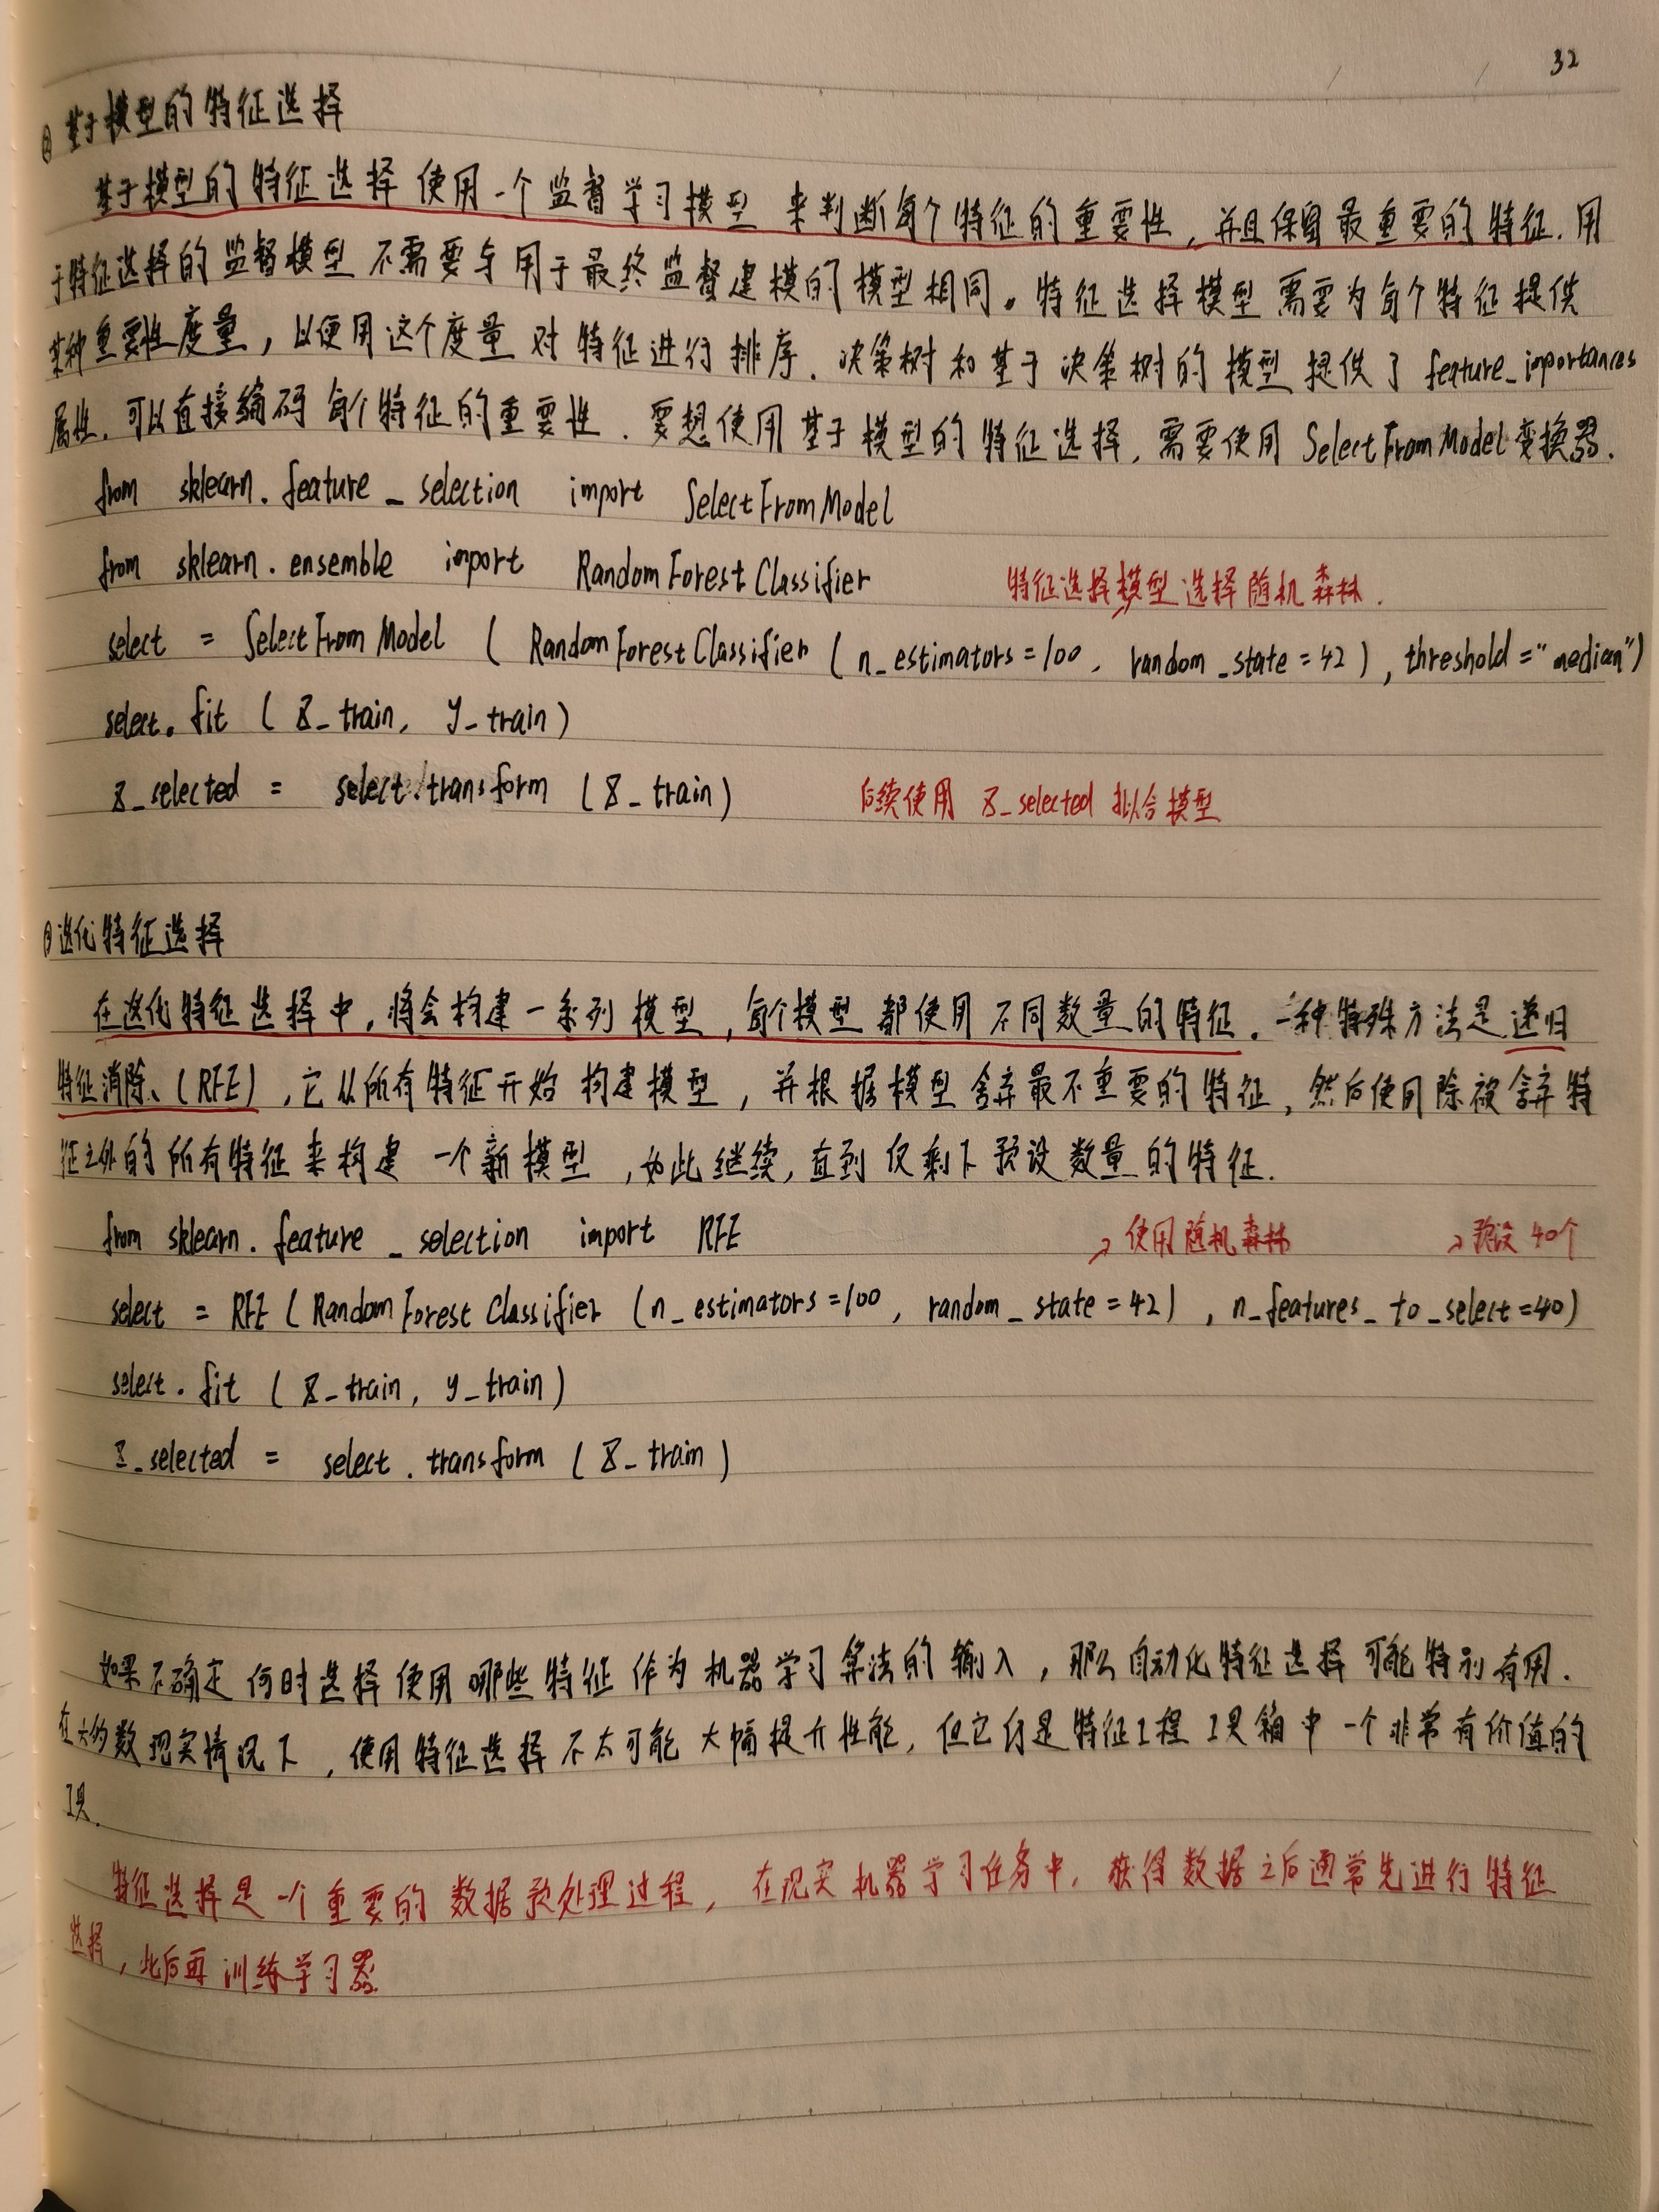 32
② 基于模型的特征选择
基于模型的特征选择 使用一个监督学习模型 来判断每个特征的重要性，并且保留最重要的特征. 用
于特征选择的监督模型 不需要与用于最终监督建模的模型相同。特征选择模型 需要为每个特征提供
某种重要性度量，以便用这个度量 对特征进行排序. 决策树和基于决策树的模型 提供了 feature_importances
属性, 可以直接编码 每个特征的重要性. 要想使用基于模型的特征选择, 需要使用 SelectFromModel 变换器.
from sklearn.feature_selection import SelectFromModel
from sklearn.ensemble import RandomForestClassifier 特征选择模型选择随机森林.
select = SelectFromModel ( RandomForestClassifier ( n_estimators=100, random_state=42 ), threshold="median")
select.fit ( X_train, y_train )
X_selected = select.transform ( X_train ) 后续使用 X_selected 拟合模型
③ 迭代特征选择
在迭代特征选择中, 将会构建一系列模型, 每个模型都使用不同数量的特征. 一种特殊方法是递归
特征消除、(RFE), 它从所有特征开始构建模型, 并根据模型舍弃最不重要的特征, 然后使用除被舍弃特
征之外的所有特征来构建 一个新模型, 如此继续, 直到仅剩下预设数量的特征.
from sklearn.feature_selection import RFE → 使用随机森林 → 预设40个
select = RFE ( RandomForestClassifier ( n_estimators=100, random_state=42 ), n_features_to_select=40)
select.fit ( X_train, y_train )
X_selected = select.transform ( X_train )
如果不确定何时选择使用哪些特征作为机器学习算法的输入, 那么自动化特征选择可能特别有用.
在大多数现实情况下, 使用特征选择不太可能大幅提升性能, 但它仍是特征工程工具箱中一个非常有价值的
工具.
特征选择是一个重要的数据预处理过程, 在现实机器学习任务中, 获得数据之后通常先进行特征
选择, 此后再训练学习器